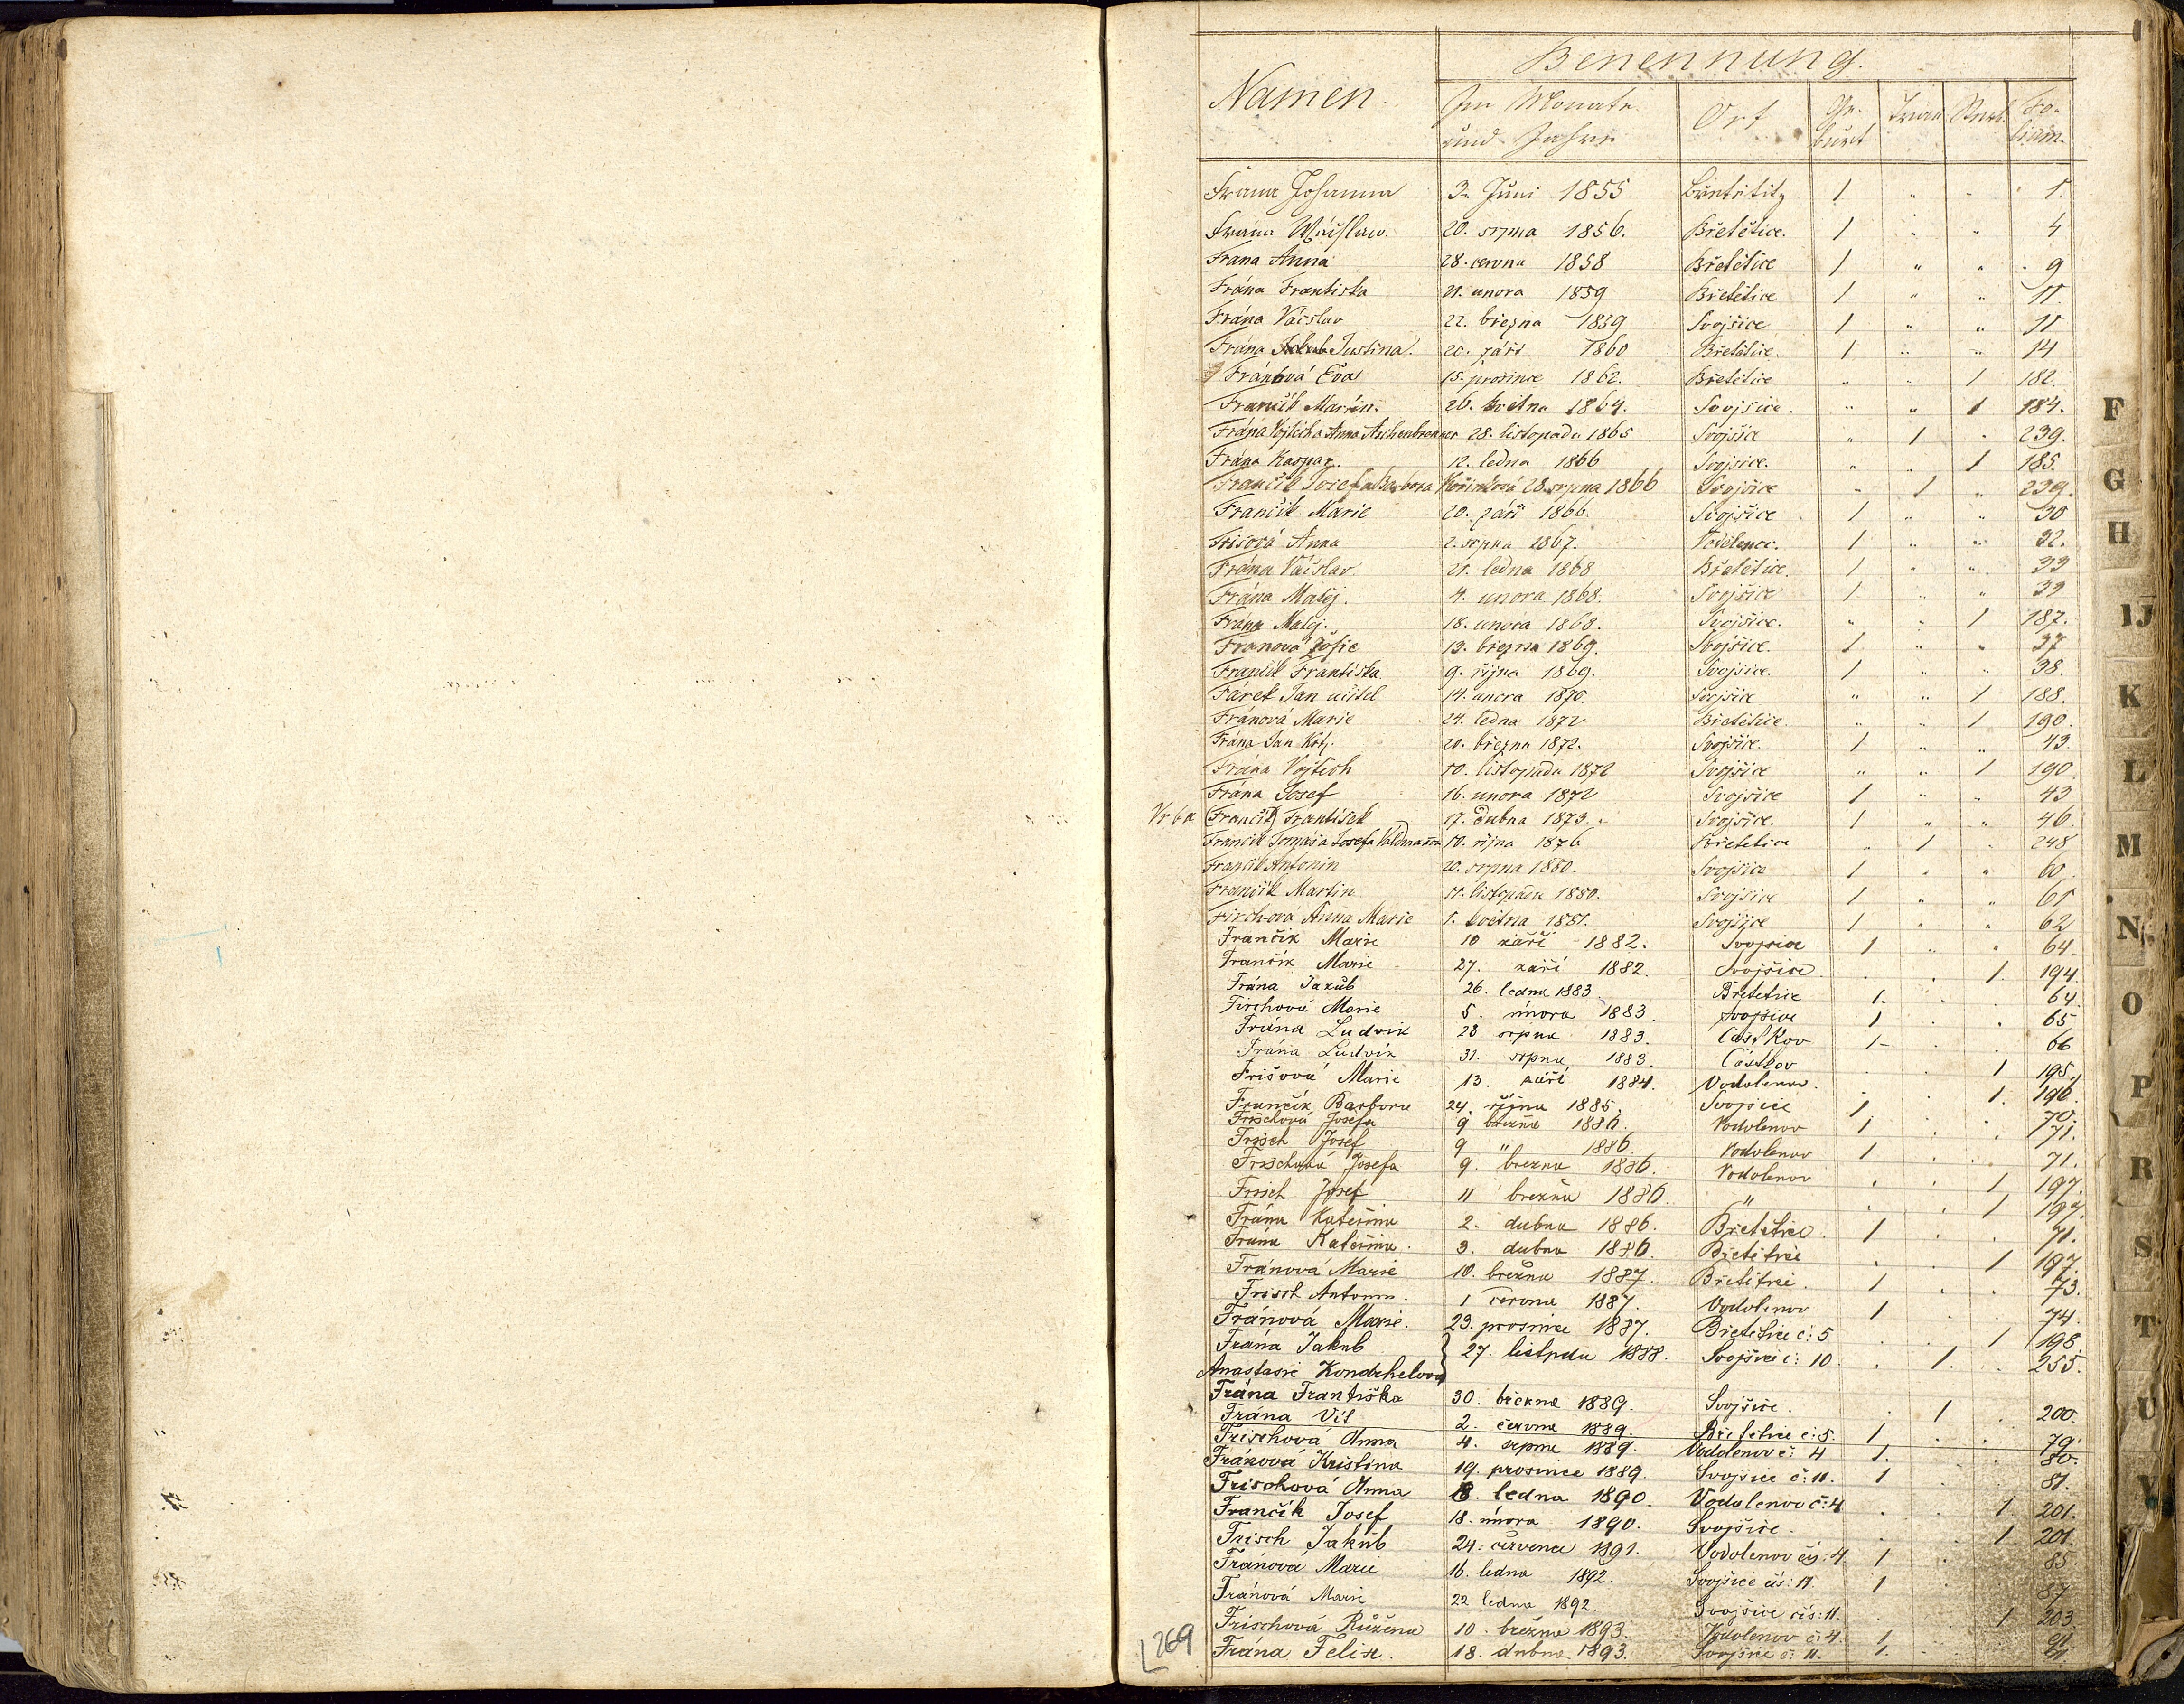 Benennung.
Namen. Im Monate und Jahre Ort Ge-burt Trau Sterb. Fo-lium.
Frana Johanna 3. Juni 1855 Břetětitz 1 " " 1.
Frána Wáclaw. 20. srpna 1856. Břetětice. 1 " " 4
Frana Anna 28. června 1858 Břetětice 1 " " 9
Frána Františka 21. unora 1859 Břetětice 1 " " 11.
Frána Václav 22. března 1859 Svojšice 1 " " 11
Frána Justina. 20. září 1860 Břetětice. 1 " " 14
Fránová Eva 15. prosince 1862. Břetětice " " 1 182.
Frančík Martin. 26. května 1864. Svojšice. " " 1 184.
Frána Vojtěch a Anna Aschenbrenner 28. listopadu 1865 Svojšice " 1 " 239.
Frána Kaspar. 12. ledna 1866 Svojšice. " " 1 185.
Frančík Josef a Barbora Kořínková 28. srpna 1866 Svojšice " 1 " 239.
Frančík Marie 20. září 1866. Svojšice 1 " " 30
Frišová Anna 2. srpna 1867. 1 " " 32.
Frána Václav. 21. ledna 1868 Břetětice. 1 " " 33
Frána Matěj. 4. unora 1868. Svojšice 1 " " 33
Frana Matěj. 18. unora 1868. Svojšice. " " 1 187.
Franová Žofie 13. března 1869. Svojšice. 1 " " 37
Frančík Františka 9. října 1869. Svojšice. 1 " " 38.
Fárek Jan učitel 14. unora 1870. Svojšice " " 1 188.
Fránová Marie 24. ledna 1872 Břetětice. " " 1 190.
Frána Jan Křt. 20. března 1872. Svojšice. 1 " " 43.
Frána Vojtěch 10. listopadu 1872 Svojšice " " 1 190
Frána Josef 16. unora 1872 Svojšice 1 " " 43
Vrba (Frančík) František 17. dubna 1873. Svojšice. 1 " " 46
Frančík Tomáš a Josefa Valdmanon 10. října 1876 Břetětice " 1 " 248
Frančík Antonin 20. srpna 1880. Svojšice 1 " " 60.
Frančík Martin 11. listopadu 1880. Svojšice 1 " " 61
Firchova Anna Marie 1. května 1881. Svojšice 1 " " 62
Frančík Marie 10 září 1882. Svojšice 1 " " 64.
Frančík Marie 27. září 1882. Svojšice. . . 1. 194.
Frána Jakub 26. ledna 1883 Břetětice 1. . 64.
Firchová Marie 5. února 1883. Svojšice 1 . . 65
Frána Ludvík 28 srpna 1883. Částkov 1- . . 66
Frána Ludvík 31. srpna 1883. Částkov . . 1 195.
Frišová Marie 13. září 1884. Vodolenov. . . 1. 196.
Frančík Barbora 24. října 1885. Svojšice 1 . . 70.
Frischová Josefa 9 března 1886. Vodolenov 1 . . 71.
Frisch Josef 9 " 1886. Vodolenov 1 . . 71.
Frischová Josefa 9. března 1886. Vodolenov . . 1 197.
Frisch Josef 11 března 1886. " . . 1 197.
Frána Kateřina 2. dubna 1886. Břetětice. 1 . . 71.
Frána Kateřina. 3. dubna 1886. Břetětice . . 1 197.
Fránová Marie 10. března 1887. Břetětice. 1 . . 73.
Frisch Antonín. 1 června 1887. Vodolenov 1 . . 74.
Fránová Marie. 23. prosince 1887. Břetětice č: 5 . . 1 198.
Frána Jakub } 27. listpdu 1888. Svojšice č: 10. . 1. . 255.
Anastasie Kondrhelova
Frána Františka 30. března 1889. Svojšice. . 1 . 200.
Frána Vít 2. června 1889. Břetětice č:5. 1 . . 79.
Frischová Anna 4. srpna 1889. Vodolenov č: 4 1. . . 80.
Fránová Kristina 19. prosince 1889. Svojšice č: 11. 1 . . 81.
Frischová Anna 8. ledna 1890. Vodolenov č:4 . . 1. 201.
Frančík Josef 18. února 1890. Svojšice. . . 1 201.
Frisch Jakub 24. července 1891. Vodolenov čís: 4 1 . . 85.
Fránová Marie 16. ledna 1892. Svojšice čís: 11. 1 . . 87
Fránová Marie 22 ledna 1892. Svojšice čís: 11. . . 1 203.
Frischová Růžena 10. března 1893. Vodolenov č: 4. 1 . .
Frána Felix. 18. dubna 1893. Svojšice č: 11. 1. . .
269
F
G
H
IJ
K
L
M
N
O
P
R
S
T
U
V